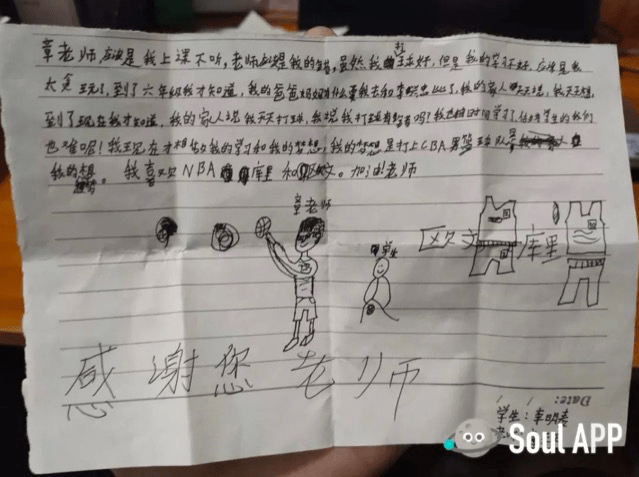 章老师,应该是我上课不听,老师应该是我的错,虽然我打球好,但是我的学习不好,应该是我
太贪玩了,到了六年级我才知道,我的爸爸妈妈为什么要我去和李 比了,我的家人天天说,我天天想,
到了现在我才知道,我的家人说我天天打球,我说我打球有错吗?我 时间学习, 学生的我们
也难呢!我现在才想 我的学习和我的梦想,我的梦想是打上CBA男篮球队
我的梦想。我喜欢NBA的库里和欧文。加油老师
章老师
学生
欧文
库里
感谢您老师
Date:
学生:李明
Soul APP